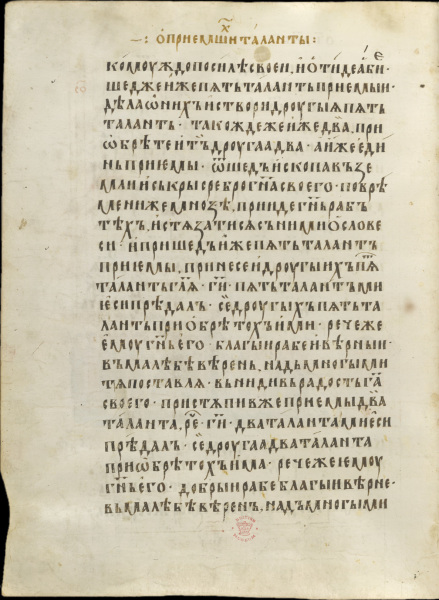 о приемши таланты
комоуждо по силѣ своеи. и отиде абїе
шедже иже пѧть таланть приемыи.
дѣла ѡ нихъ и створи дроугыѧ пѧть
таланть. такождеже иже два, при
ѡбрѣте и тъ дроугаа два. а иже еди
нь приемы. ѡшедъ ископа въ зе
мли и съкры сребро гн҃а своего. по врѣ
мениже мнозѣ, прииде гн҃ь рабъ
тѣхъ, и стѧзатисѧ съ ними о слове
си. и пришедъ иже пѧть таланть
приемы, принесе и дроугыихъ пѧ҃
таланть гл҃ѧ. гн҃. пѧть таланть ми
еси прѣдаль. се дроугыхъ пѧть та
ланть приобрѣтохъ ими. речеже
емоу гн҃ь его. благыи рабе и вѣрныи
въ малѣ бѣ вѣрень, надъ многыми
тѧ поставлѧ. вьниди въ радость г҃а
своего. пристѧпивже приемы два
таланта. р҃е. гн҃. два таланта ми еси
прѣдаль. се дроугаа два таланта
приѡбрѣтохъ има. речеже емоу
гн҃ь его. добрыи рабе благыи вѣрне.
въ малѣ бѣ вѣрень, надъ многыми